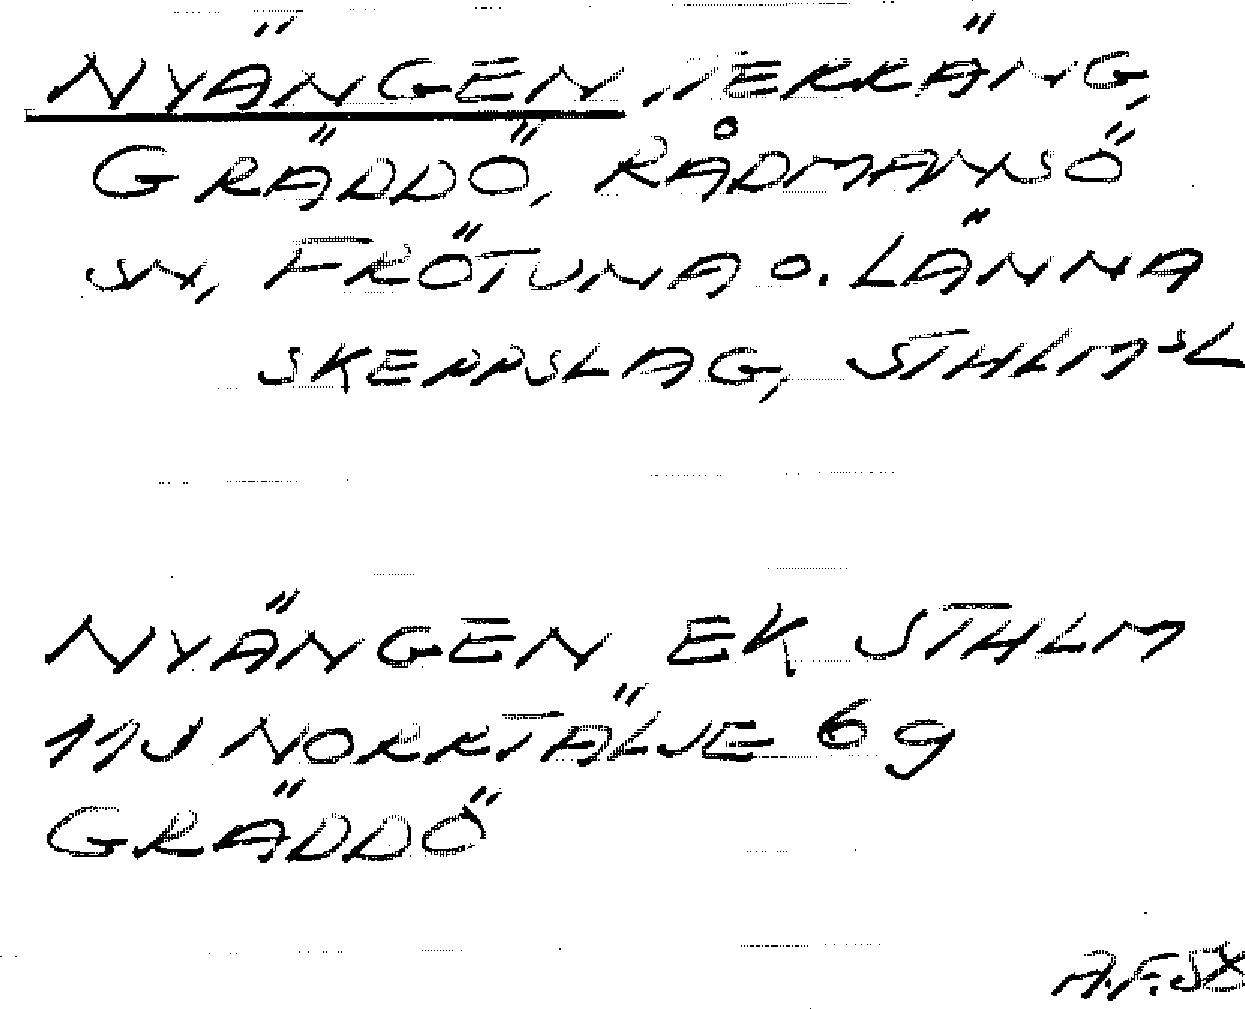 NYÄNGEN, TERRÄNG,
GRÄDDÖ, RÅDMANSÖ
SN, FRÖTUNA O. LÄNNA
SKEPPSLAG, STHLMSL
NYÄNGEN EK STHLM
11J NORRTÄLJE 6 g
GRÄDDÖ
A.F.58